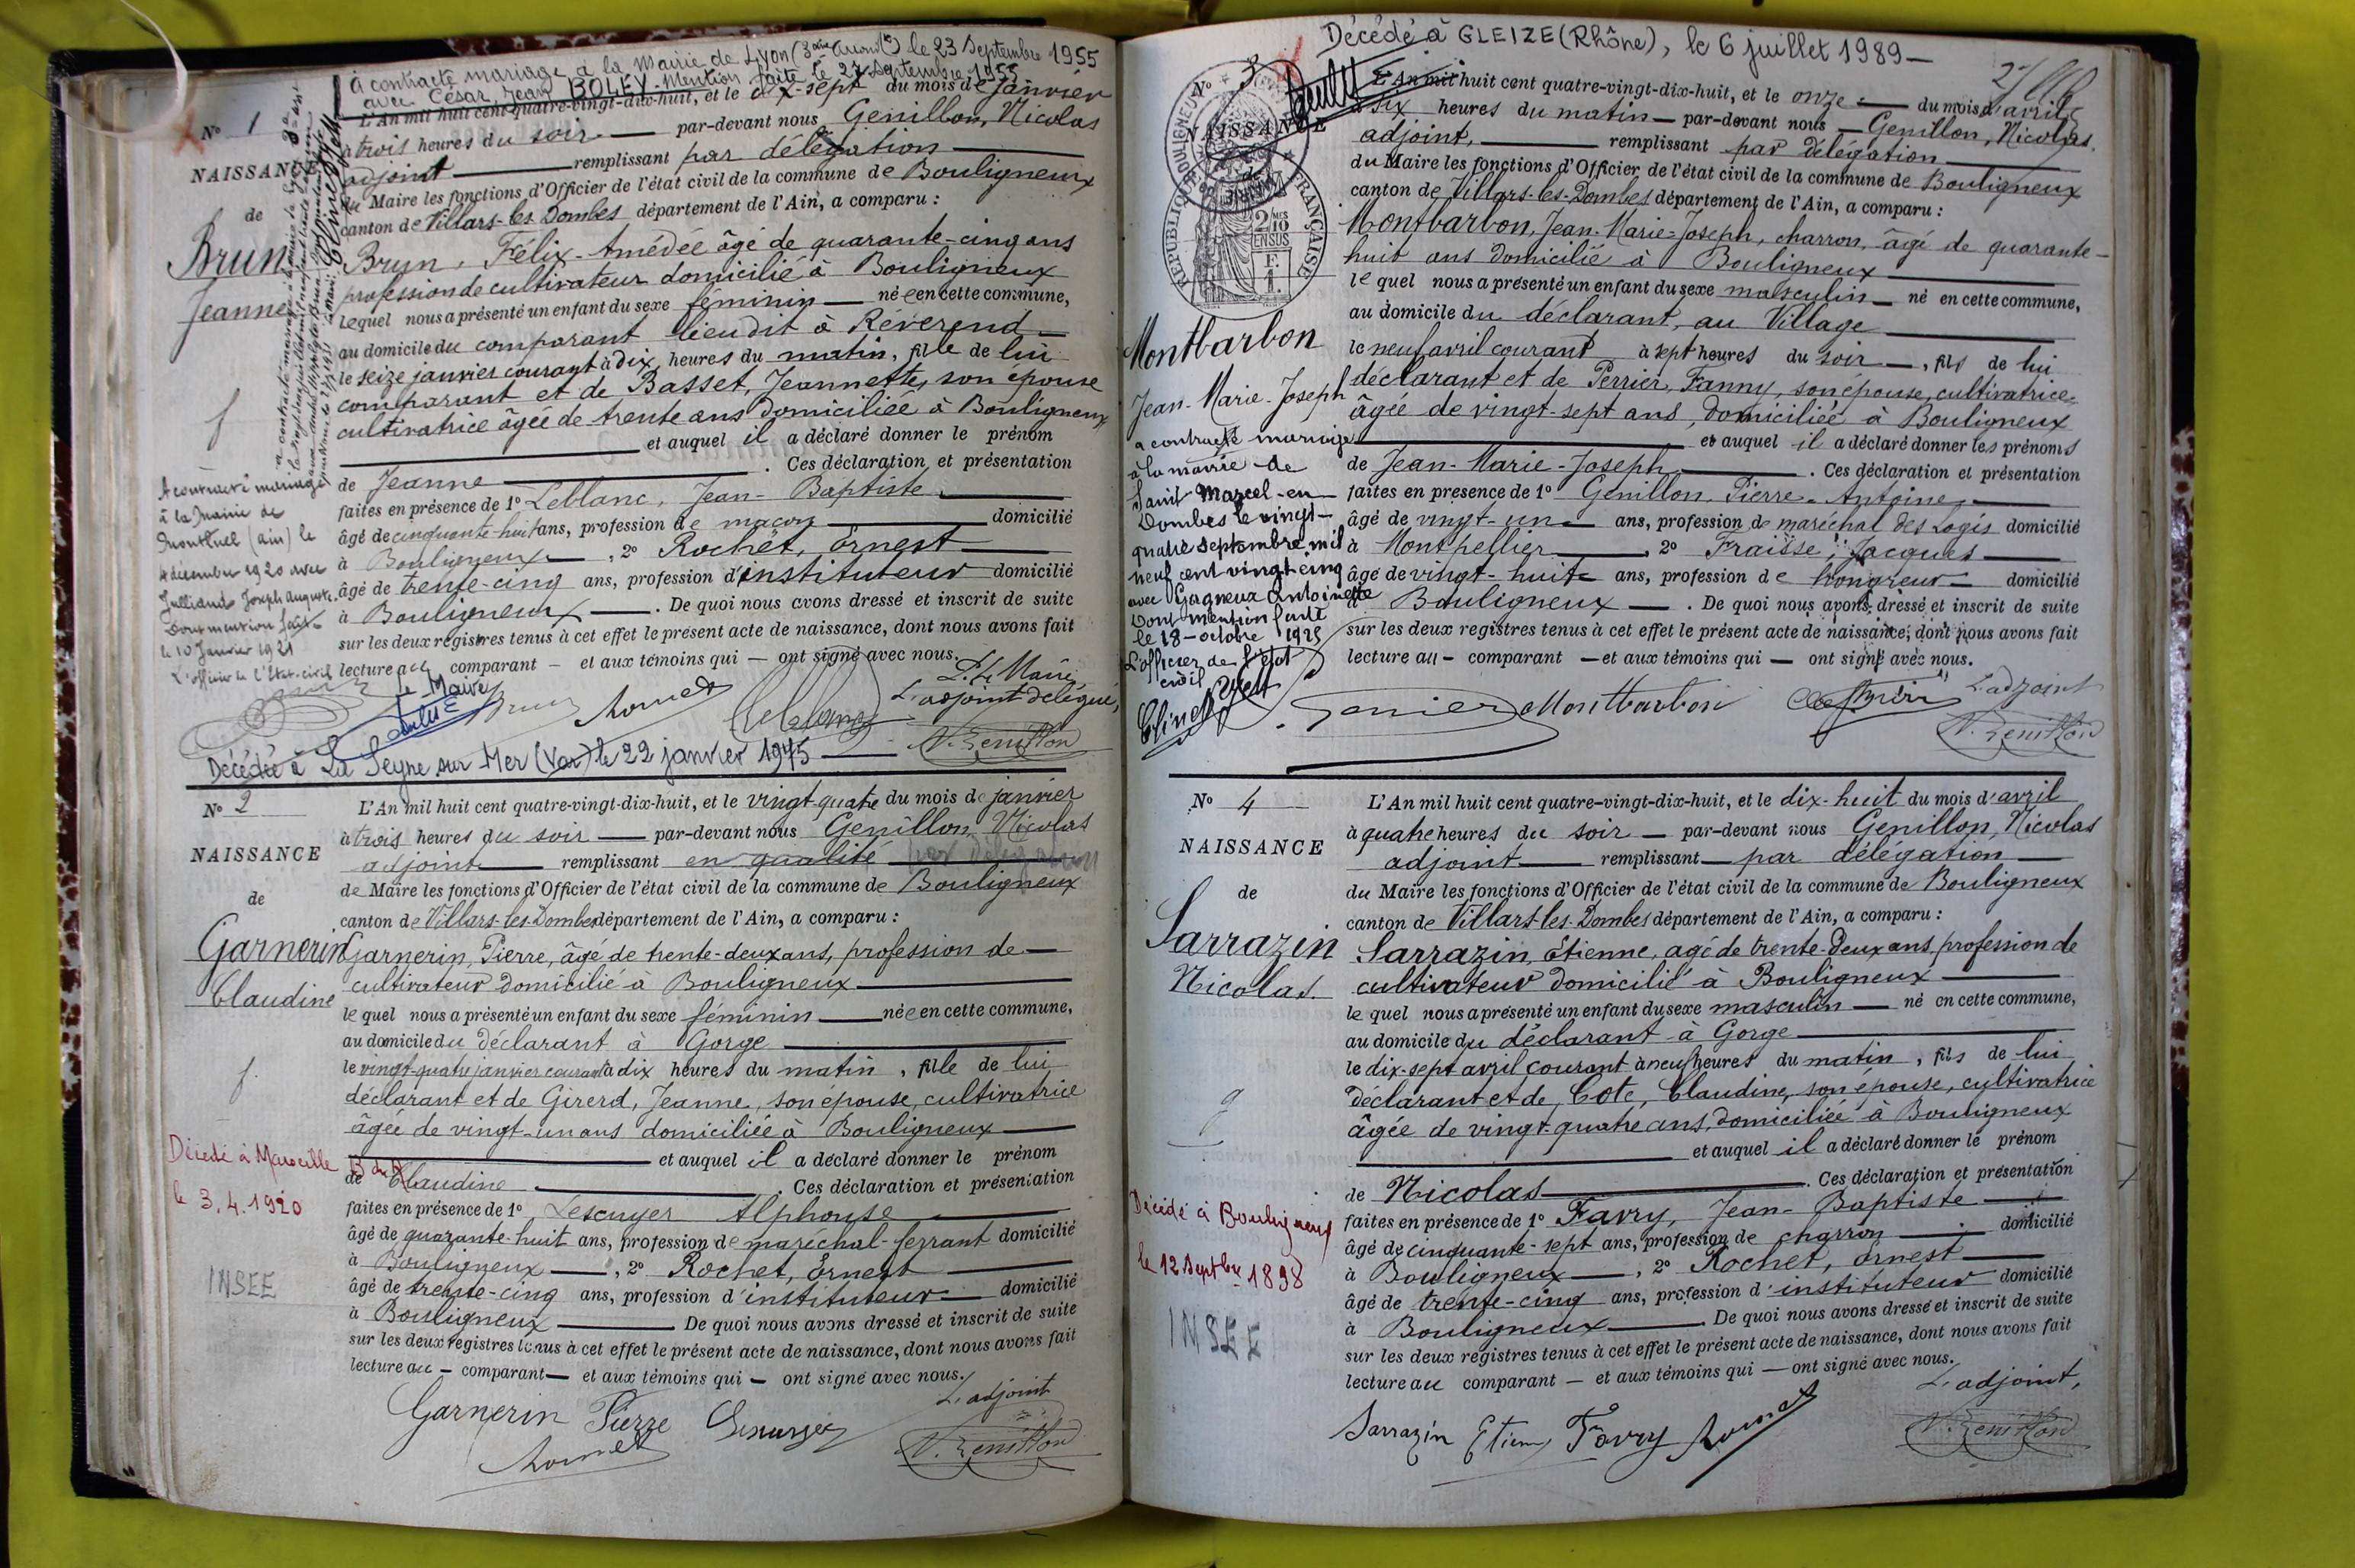 A contracté mariage à la Mairie de Lyon (3ème arrondt) le 23 Septembre 1955
avec César, Jean BOLEY. Mention faite le 27 Septembre 1955
N° 1
L'An mil huit cent quatre-vingt-dix-huit, et le dix-sept du mois de janvier
à trois heures du soir par-devant nous Genillon, Nicolas
NAISSANCE
adjoint remplissant par délégation
du Maire les fonctions d'Officier de l'état civil de la commune de Bouligneux
de
canton de Villars-les-Dombes département de l'Ain, a comparu :
Brun
Jeanne
Brun, Félix-Amédée âgé de quarante-cinq ans
profession de cultivateur domicilié à Bouligneux
lequel nous a présenté un enfant du sexe féminin née en cette commune,
au domicile du comparant lieu dit à Réverend
le seize janvier courant à dix heures du matin, fille de lui
comparant et de Basset, Jeannette, son épouse
cultivatrice âgée de trente ans domiciliée à Bouligneux
f
et auquel il a déclaré donner le prénom
de Jeanne . Ces déclaration et présentation
faites en présence de 1° Leblanc, Jean-Baptiste
âgé de cinquante-huit ans, profession de maçon domicilié
à Bouligneux, 2° Rochet, Ernest
âgé de trente-cinq ans, profession d'instituteur domicilié
à Bouligneux . De quoi nous avons dressé et inscrit de suite
sur les deux registres tenus à cet effet le présent acte de naissance, dont nous avons fait
lecture au comparant – et aux témoins qui – ont signé avec nous.
A contracté mariage
à la Mairie de
Montluel (ain) le
4 décembre 1920 avec
Julliand Joseph Auguste.
Dont mention faite
le 10 Janvier 1921
L'officier de l'Etat-civil
Le Maire
P. Le Maire,
L'adjoint délégué,
Brun Rochet Leblanc
N. Genillon
Décédée à La Seyne sur Mer (Var) le 22 janvier 1975
N° 2
L'An mil huit cent quatre-vingt-dix-huit, et le vingt-quatre du mois de janvier
à trois heures du soir par-devant nous Genillon, Nicolas
NAISSANCE
adjoint remplissant en qualité par délégation
de Maire les fonctions d'Officier de l'état civil de la commune de Bouligneux
de
canton de Villars-les-Dombes département de l'Ain, a comparu :
Garnerin
Claudine
Garnerin, Pierre, âgé de trente-deux ans, profession de
cultivateur domicilié à Bouligneux
lequel nous a présenté un enfant du sexe féminin née en cette commune,
au domicile du déclarant à Gorge
le vingt-quatre janvier courant à dix heures du matin, fille de lui
f.
déclarant et de Girerd, Jeanne, son épouse, cultivatrice
âgée de vingt-un ans domiciliée à Bouligneux
et auquel il a déclaré donner le prénom
de Claudine . Ces déclaration et présentation
Décédé à Marseille B du R
le 3.4.1920
faites en présence de 1° Lescuyer Alphonse
âgé de quarante-huit ans, profession de maréchal-ferrant domicilié
à Bouligneux, 2° Rochet, Ernest
INSEE
âgé de trente-cinq ans, profession d'instituteur domicilié
à Bouligneux De quoi nous avons dressé et inscrit de suite
sur les deux registres tenus à cet effet le présent acte de naissance, dont nous avons fait
lecture au – comparant – et aux témoins qui – ont signé avec nous.
L'adjoint
Garnerin Pierre Lescuyer
Rochet
N. Genillon
Décédé à GLEIZE (Rhône), le 6 juillet 1989
N° 3
L'An mil huit cent quatre-vingt-dix-huit, et le onze du mois d'avril
à six heures du matin par-devant nous Genillon, Nicolas,
NAISSANCE
adjoint, remplissant par délégation
du Maire les fonctions d'Officier de l'état civil de la commune de Bouligneux
de
canton de Villars-les-Dombes département de l'Ain, a comparu :
RÉPUBLIQUE FRANÇAISE
2/10 MES
EN SUS
F.
1.
Montbarbon, Jean-Marie-Joseph, charron, âgé de quarante-
huit ans domicilié à Bouligneux
lequel nous a présenté un enfant du sexe masculin né en cette commune,
au domicile du déclarant, au Village
Montbarbon
Jean-Marie-Joseph
le neuf avril courant à sept heures du soir, fils de lui
déclarant et de Perrier, Fanny, son épouse, cultivatrice
âgée de vingt-sept ans, domiciliée à Bouligneux
et auquel il a déclaré donner les prénoms
de Jean-Marie-Joseph . Ces déclaration et présentation
faites en présence de 1° Genillon, Pierre-Antoine,
âgé de vingt-un ans, profession de maréchal des Logis domicilié
à Montpellier, 2° Fraisse, Jacques
âgé de vingt-huit ans, profession de hongreur domicilié
à Bouligneux . De quoi nous avons dressé et inscrit de suite
sur les deux registres tenus à cet effet le présent acte de naissance, dont nous avons fait
lecture au – comparant – et aux témoins qui – ont signé avec nous.
a contracté mariage
à la mairie de
Saint Marcel-en
Dombes le vingt-
quatre septembre mil
neuf cent vingt-cinq
avec Gagneux Antoinette
Dont mention faite
le 18 octobre 1925
L'officier de l'état
civil
L'adjoint
Montbarbon
N. Genillon
N° 4
L'An mil huit cent quatre-vingt-dix-huit, et le dix-huit du mois d'avril
à quatre heures du soir par-devant nous Genillon, Nicolas
NAISSANCE
adjoint remplissant par délégation
du Maire les fonctions d'Officier de l'état civil de la commune de Bouligneux
de
canton de Villars-les-Dombes département de l'Ain, a comparu :
Sarrazin
Nicolas.
Sarrazin, Étienne, âgé de trente-deux ans, profession de
cultivateur domicilié à Bouligneux
lequel nous a présenté un enfant du sexe masculin né en cette commune,
au domicile du déclarant à Gorge
le dix-sept avril courant à neuf heures du matin, fils de lui
g
déclarant et de Cote, Claudine, son épouse, cultivatrice
âgée de vingt-quatre ans, domiciliée à Bouligneux
et auquel il a déclaré donner le prénom
de Nicolas . Ces déclaration et présentation
Décédé à Bouligneux
le 12 Septbre 1898
faites en présence de 1° Favry, Jean-Baptiste
âgé de cinquante-sept ans, profession de charron domicilié
à Bouligneux, 2° Rochet, Ernest
INSEE
âgé de trente-cinq ans, profession d'instituteur domicilié
à Bouligneux . De quoi nous avons dressé et inscrit de suite
sur les deux registres tenus à cet effet le présent acte de naissance, dont nous avons fait
lecture au comparant – et aux témoins qui – ont signé avec nous.
L'adjoint,
Sarrazin Etienne Favry Rochet
N. Genillon